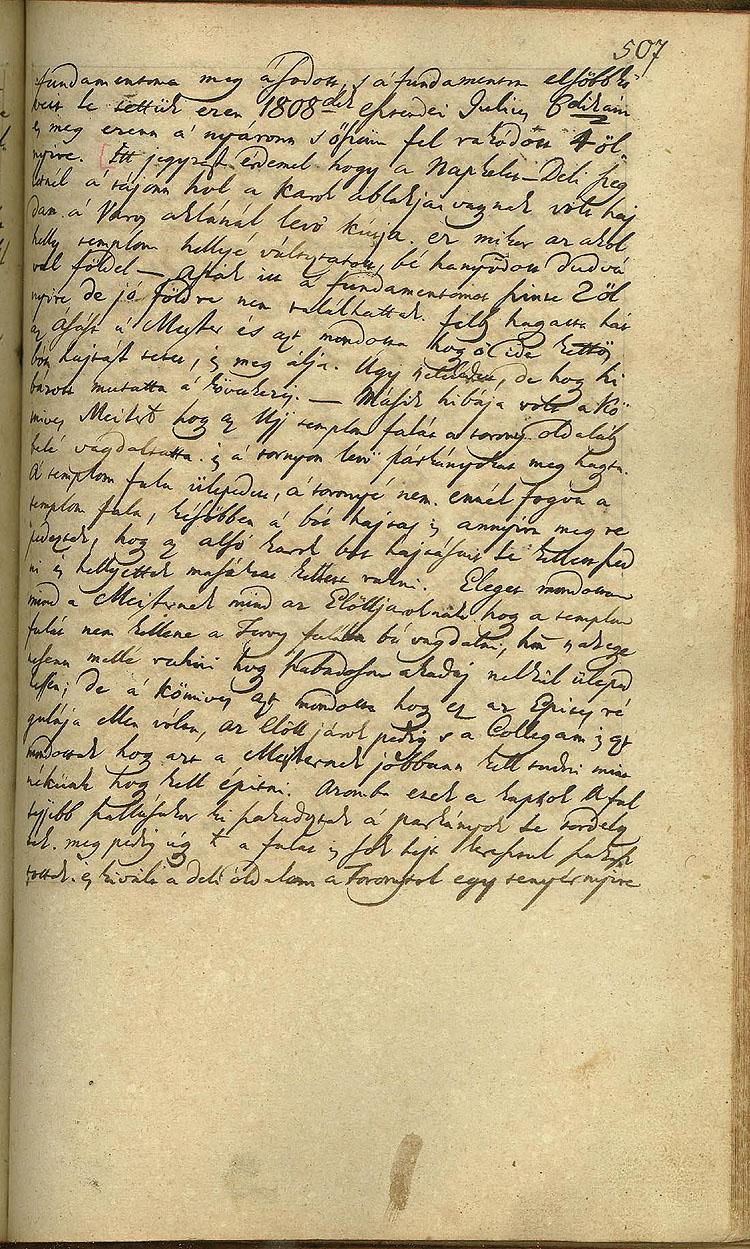 507
fundamentoma meg ásodott, s a fundamentom elsőbb kö-
vett le tettük ezen 1808dik esztendei Julius 6dikán
és meg ezenn a' nyáronn s őszinn fel rakódott 4 öl-
nyire. Itt jegyzést érdemel hogy a Napkelet-Deli szeg
letnél a' tájonn hol a Karok ablakjai vagynak volt haj
dan a' Város aklánál levő kútja. ez mikor az akol
helly templom hellyé változtatott, bé hanyódott dudvá
val földel — ásták itt a fundamentomot szinte 2 öl
nyire de jó földre nem találhattak. felb hagyatta hát
az ásást a' Mester és azt mondotta hogy ő ide kettős
bót hajtást teszen, is meg álja. Ugy de hogy hi
bázott mutatta a' következés. — Másik hibája volt a Kő
mives Mesternek hogy az Uj templom falát a torony oldalába
belé vagdaltatta. és a' tornyon levő párkányokat meg hagyta.
A' templom fala ülepedett, a' toronyé nem. ennél fogva a
templom fala, későbben a' bót hajtás is annyira meg re
pedeztek, hogy az alsó karok bót hajtásait le kellett szed
ni és hellyettek másokat kellett rakni. Eleget mondottam
mind a Mesternek mind az Elöljáróknak hogy a templom
falát nem kellene a Torony falába bé vagdalni, hanem
mellé rakni hogy szabadoson akadály nelkül üleped
hessen; de a' kőmives azt mondotta hogy ez az Epités ré
gulája ellen volna, az Elöll járók pedig s a Collegam is azt
mondották hogy azt a Mesternek jobbann kell tudni mint
nékünk hogy kell épitni. Azomba ezek a kaptsok A fal
sujjibb hattásakor ki szakadoztak a' párkányok le tördelőd
tek. meg pedig úgy a falat is sok helyt keresztül szakasz
tották. és kivált a déli oldalon a Toronytol egy tenyérnyire